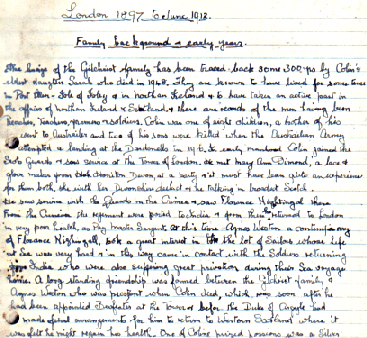 London 1897 to June 1013.
Family background & early years.
The lineage of the Gilchrist family has been traced back some 300 yrs by Colin's
eldest daughter Sarah who died in 1968. They are known to have lived for some time
in Port Ellen - Isle of Islay & in northern Ireland & to have taken an active part in
the affairs of northern Ireland & Scotland & there are records of the men having been
Preachers, Teachers, farmers & soldiers. Colin was one of eight children, a brother of his
went to Australia and two of his sons were killed when the Australian Army
attempted a landing at the Dardanelles in 1916. In early manhood Colin joined the
Scots Guards & saw service at the Tower of London. He met Mary Ann Dimond, a lace &
glove maker from Honiton Devon, at a party & it must have been quite an experience
for them both, she with her Devonshire dialect & he talking in broadest Scotch.
He saw service with the Guards in the Crimea & was Florence Nightingale there
From the Crimea the regiment were posted to India & from there returned to London
in very poor health, as Pay Master Sergeant. At this time Agnes Weston a contemporary
of Florence Nightingale, took a great interest in the lot of Sailors whose life
at Sea was very hard & in this way came in contact with the Soldiers returning
from India who were also suffering great privation during their Sea voyage
home. A long standing friendship was formed between the Gilchrist family &
Agnes Weston who was present when Colin died, which was soon after he
had been appointed Beefeater at the Tower & before the Duke of Argyle had
made final arrangements for him to return to Western Scotland where it
was felt he might regain his health. One of Colins prized possessions was a Silver